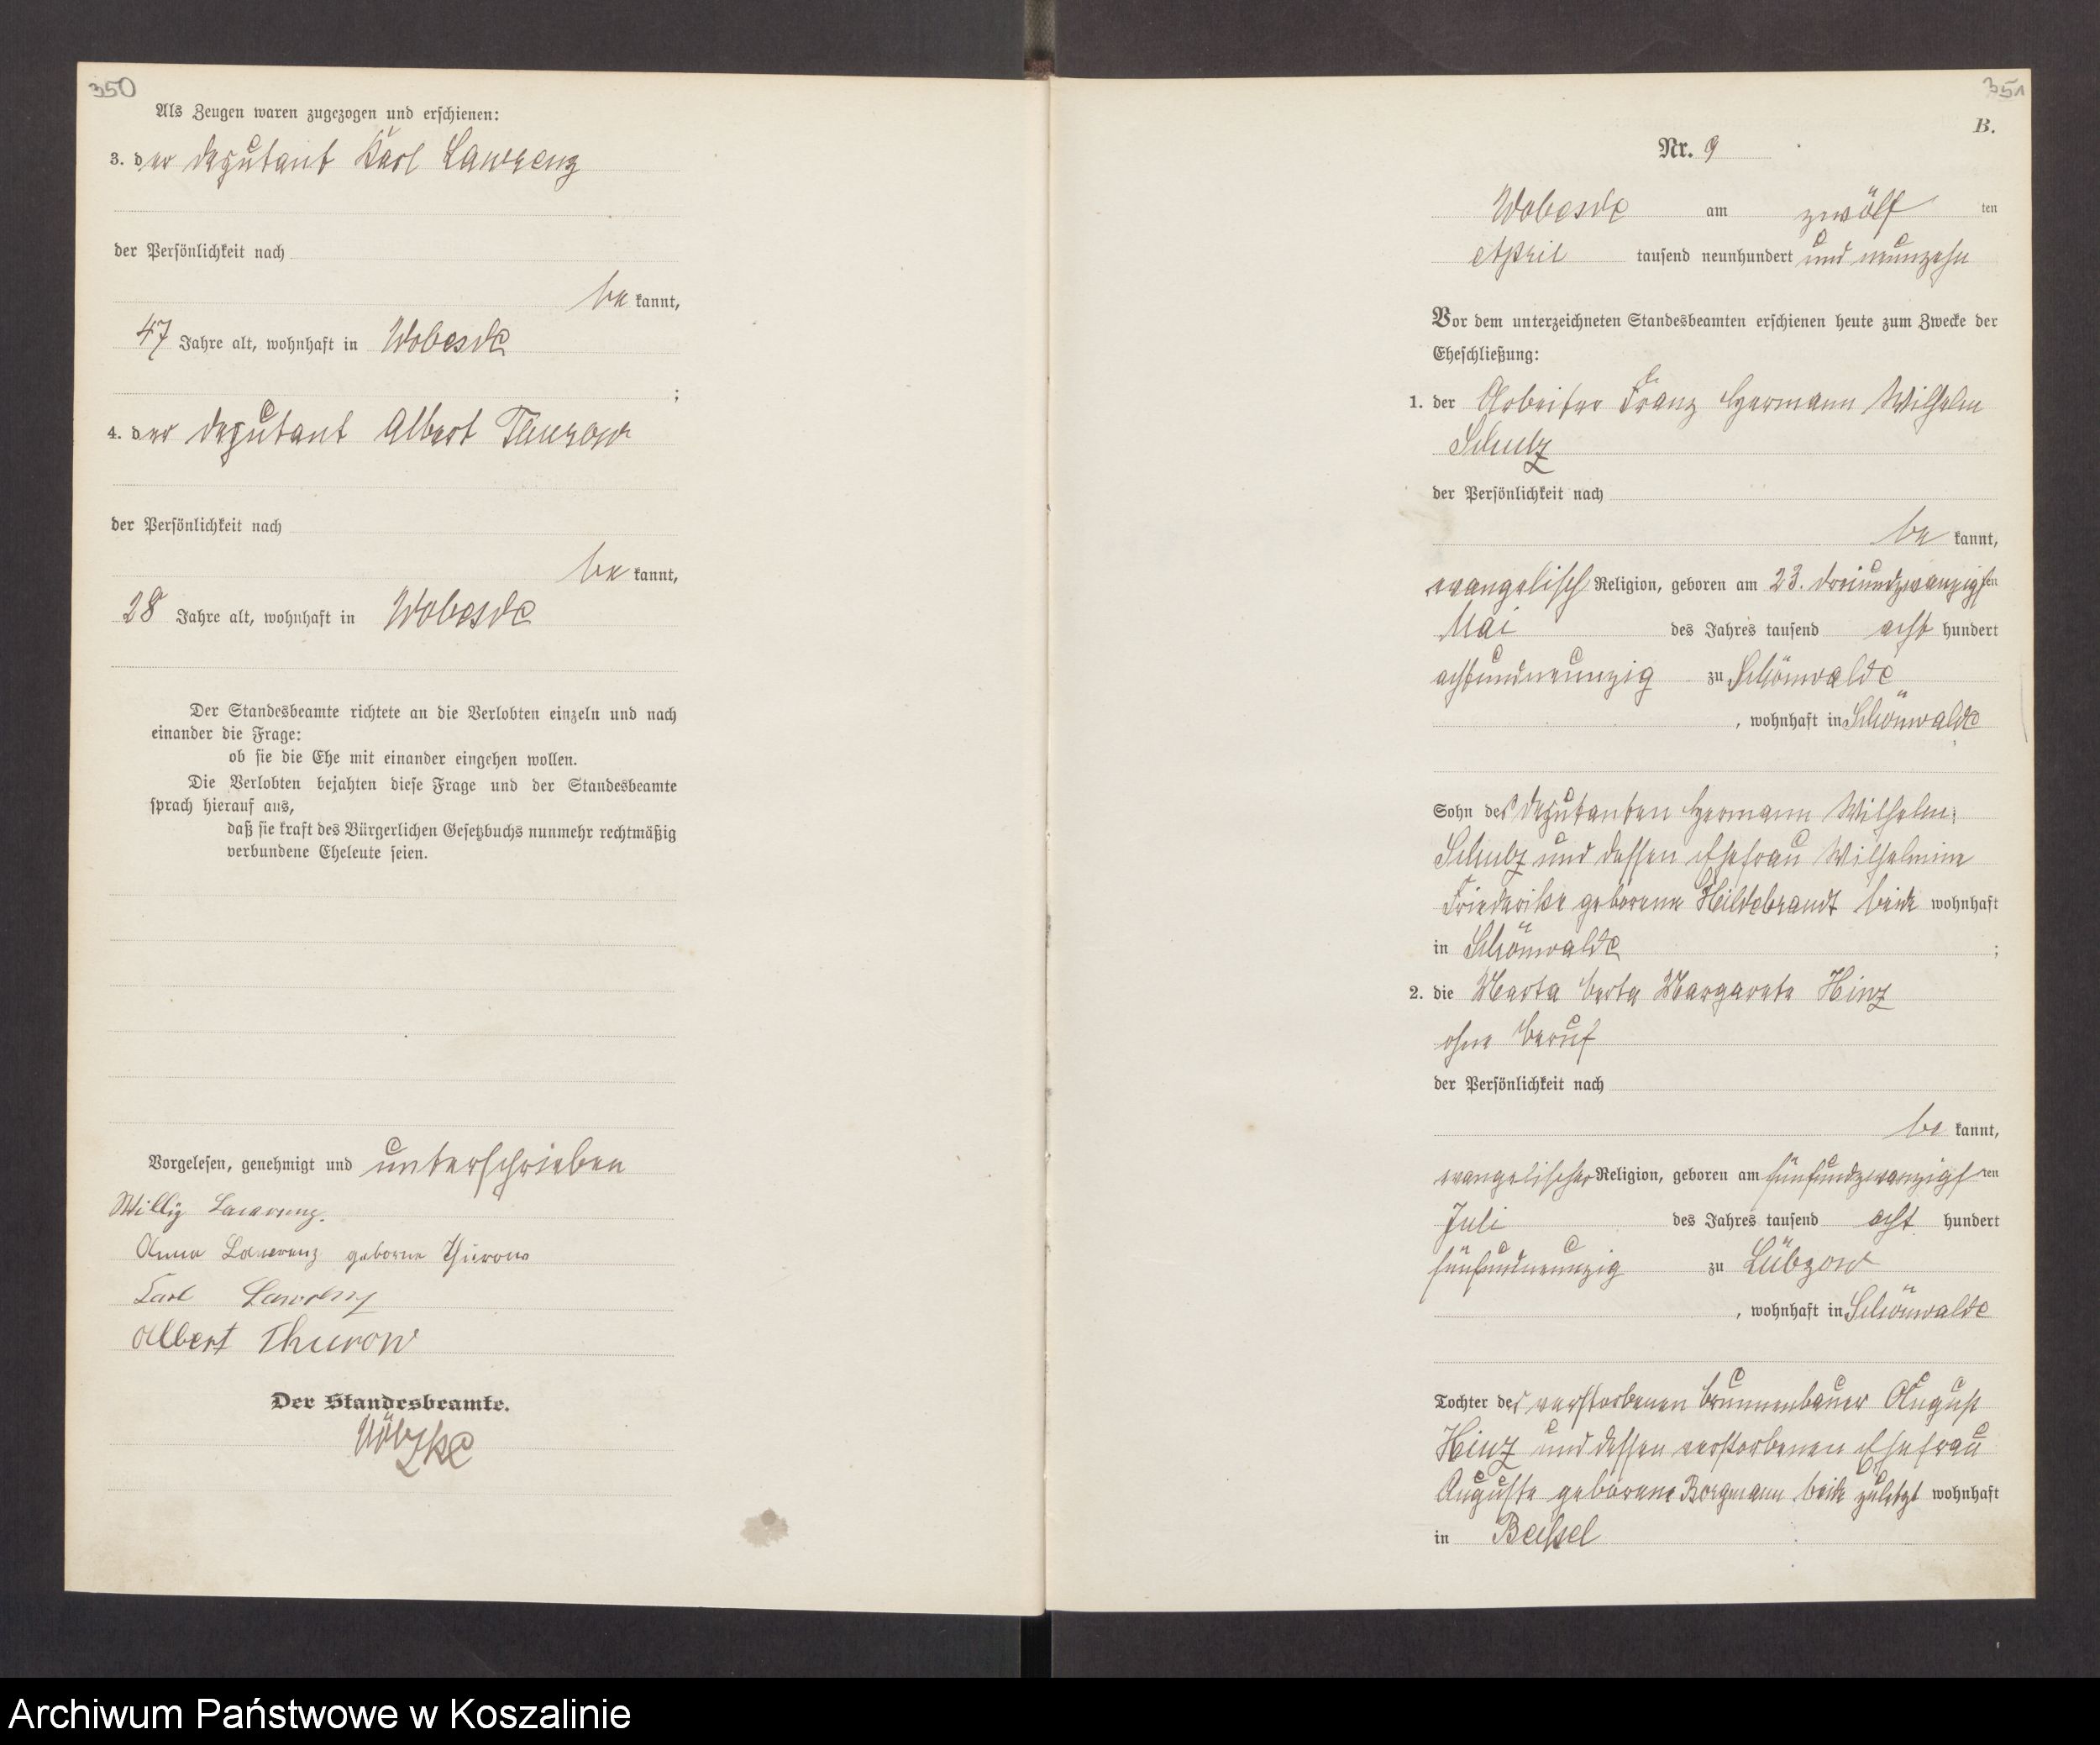 350
Als Zeugen waren zugezogen und erschienen:
3. der Deputant Karl Lawrenz
der Persönlichkeit nach
be kannt,
47 Jahre alt, wohnhaft in Wobesde
;
4. der Deputant Albert Thurow
der Persönlichkeit nach
be kannt,
28 Jahre alt, wohnhaft in Wobesde
Der Standesbeamte richtete an die Verlobten einzeln und nach
einander die Frage:
ob sie die Ehe mit einander eingehen wollen.
Die Verlobten bejahten diese Frage und der Standesbeamte
sprach hierauf aus,
daß sie kraft des Bürgerlichen Gesetzbuchs nunmehr rechtmäßig
verbundene Eheleute seien.
Vorgelesen, genehmigt und unterschrieben
Willy Lawrenz.
Anna Lawrenz geborne Thurow
Karl Lawrenz
Albert Thurow
Der Standesbeamte.
351
B.
Nr. 9
Wobesde am zwölf ten
April tausend neunhundert und neunzehn
Vor dem unterzeichneten Standesbeamten erschienen heute zum Zwecke der
Eheschließung:
1. der Arbeiter Franz Hermann Wilhelm
Schulz
der Persönlichkeit nach
be kannt,
evangelisch Religion, geboren am 23. dreiundzwanzigsten
Mai des Jahres tausend acht hundert
achtundneunzig zu Schönwalde
, wohnhaft in Schönwalde
Sohn des Deputanten Hermann Wilhelm
Schulz und dessen Ehefrau Wilhelmine
Friederike geborene Hildebrandt beide wohnhaft
in Schönwalde ;
2. die Marta Berta Margarete Hinz
ohne Beruf
der Persönlichkeit nach
be kannt,
evangelischer Religion, geboren am fünfundzwanzigsten
Juli des Jahres tausend acht hundert
fünfundneunzig zu Lübzow
, wohnhaft in Schönwalde
Tochter des verstorbenen Brunnenbauer August
Hinz und dessen verstorbenen Ehefrau
Auguste geborene Borgmann beide zuletzt wohnhaft
in Beißel
Archiwum Państwowe w Koszalinie